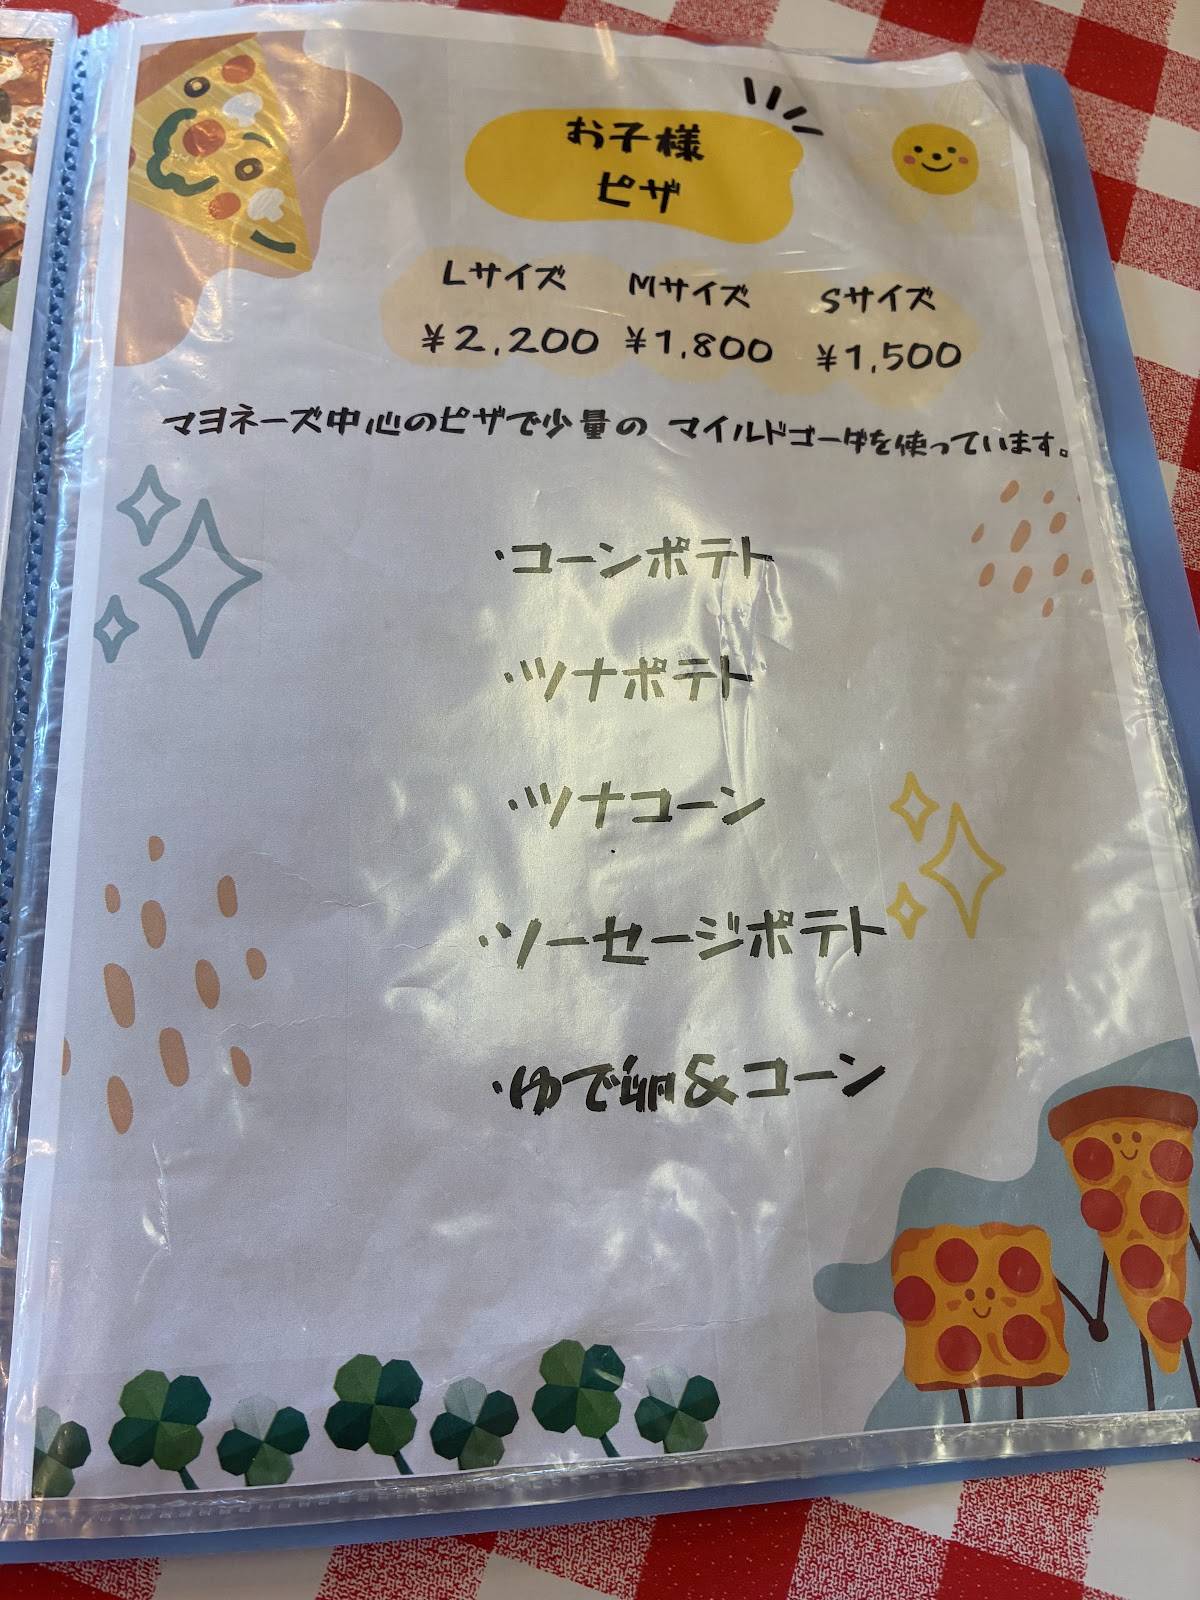 お子様
ピザ
Lサイズ Mサイズ Sサイズ
¥2,200 ¥1,800 ¥1,500
マヨネーズ中心のピザで少量の マイルドゴーダを使っています。
・コーンポテト
・ツナポテト
・ツナコーン
・ソーセージポテト
・ゆで卵&コーン